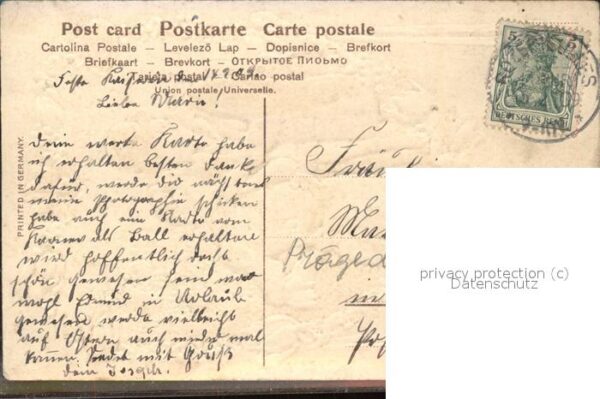 Post card Postkarte Carte postale
Cartolina Postale – Levelező Lap – Dopisnice – Brefkort
Briefkaart – Brevkort – ОТКРЫТОЕ ПИСЬМО
Tarjeta postal – Cartão postal
Union postale Universelle.
Feste
Liebe Marie!
Deine werte Karte habe
ich erhalten besten Dank
dafür, werde dir nächstens
meine Photographie schicken
habe auch eine Karte vom
als Ball erhalten
wird hoffentlich
schön gewesen sein war
wohl Edmund in Urlaub
gewesen werde vielleicht
auf Ostern auch wieder mal
kommen. mit Gruß
dein Joseph.
PRINTED IN GERMANY.
5 5
DEUTSCHES REICH
Fräul
Präged
in
privacy protection (c)
Datenschutz